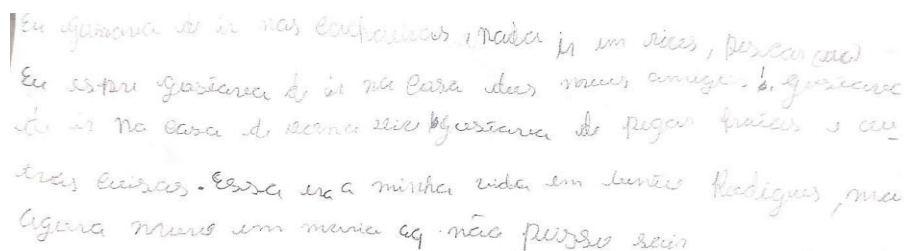 Eu gostava de ir nas cachoeiras, nada ir em rios, pescar
Eu gostava de ir na casa dos meus amigos. gostava
de ir na casa de gostava de pegar frutas e ou-
tras coisas. Essa era a minha vida em Rodigues, ma
agora moro em aq não posso sair